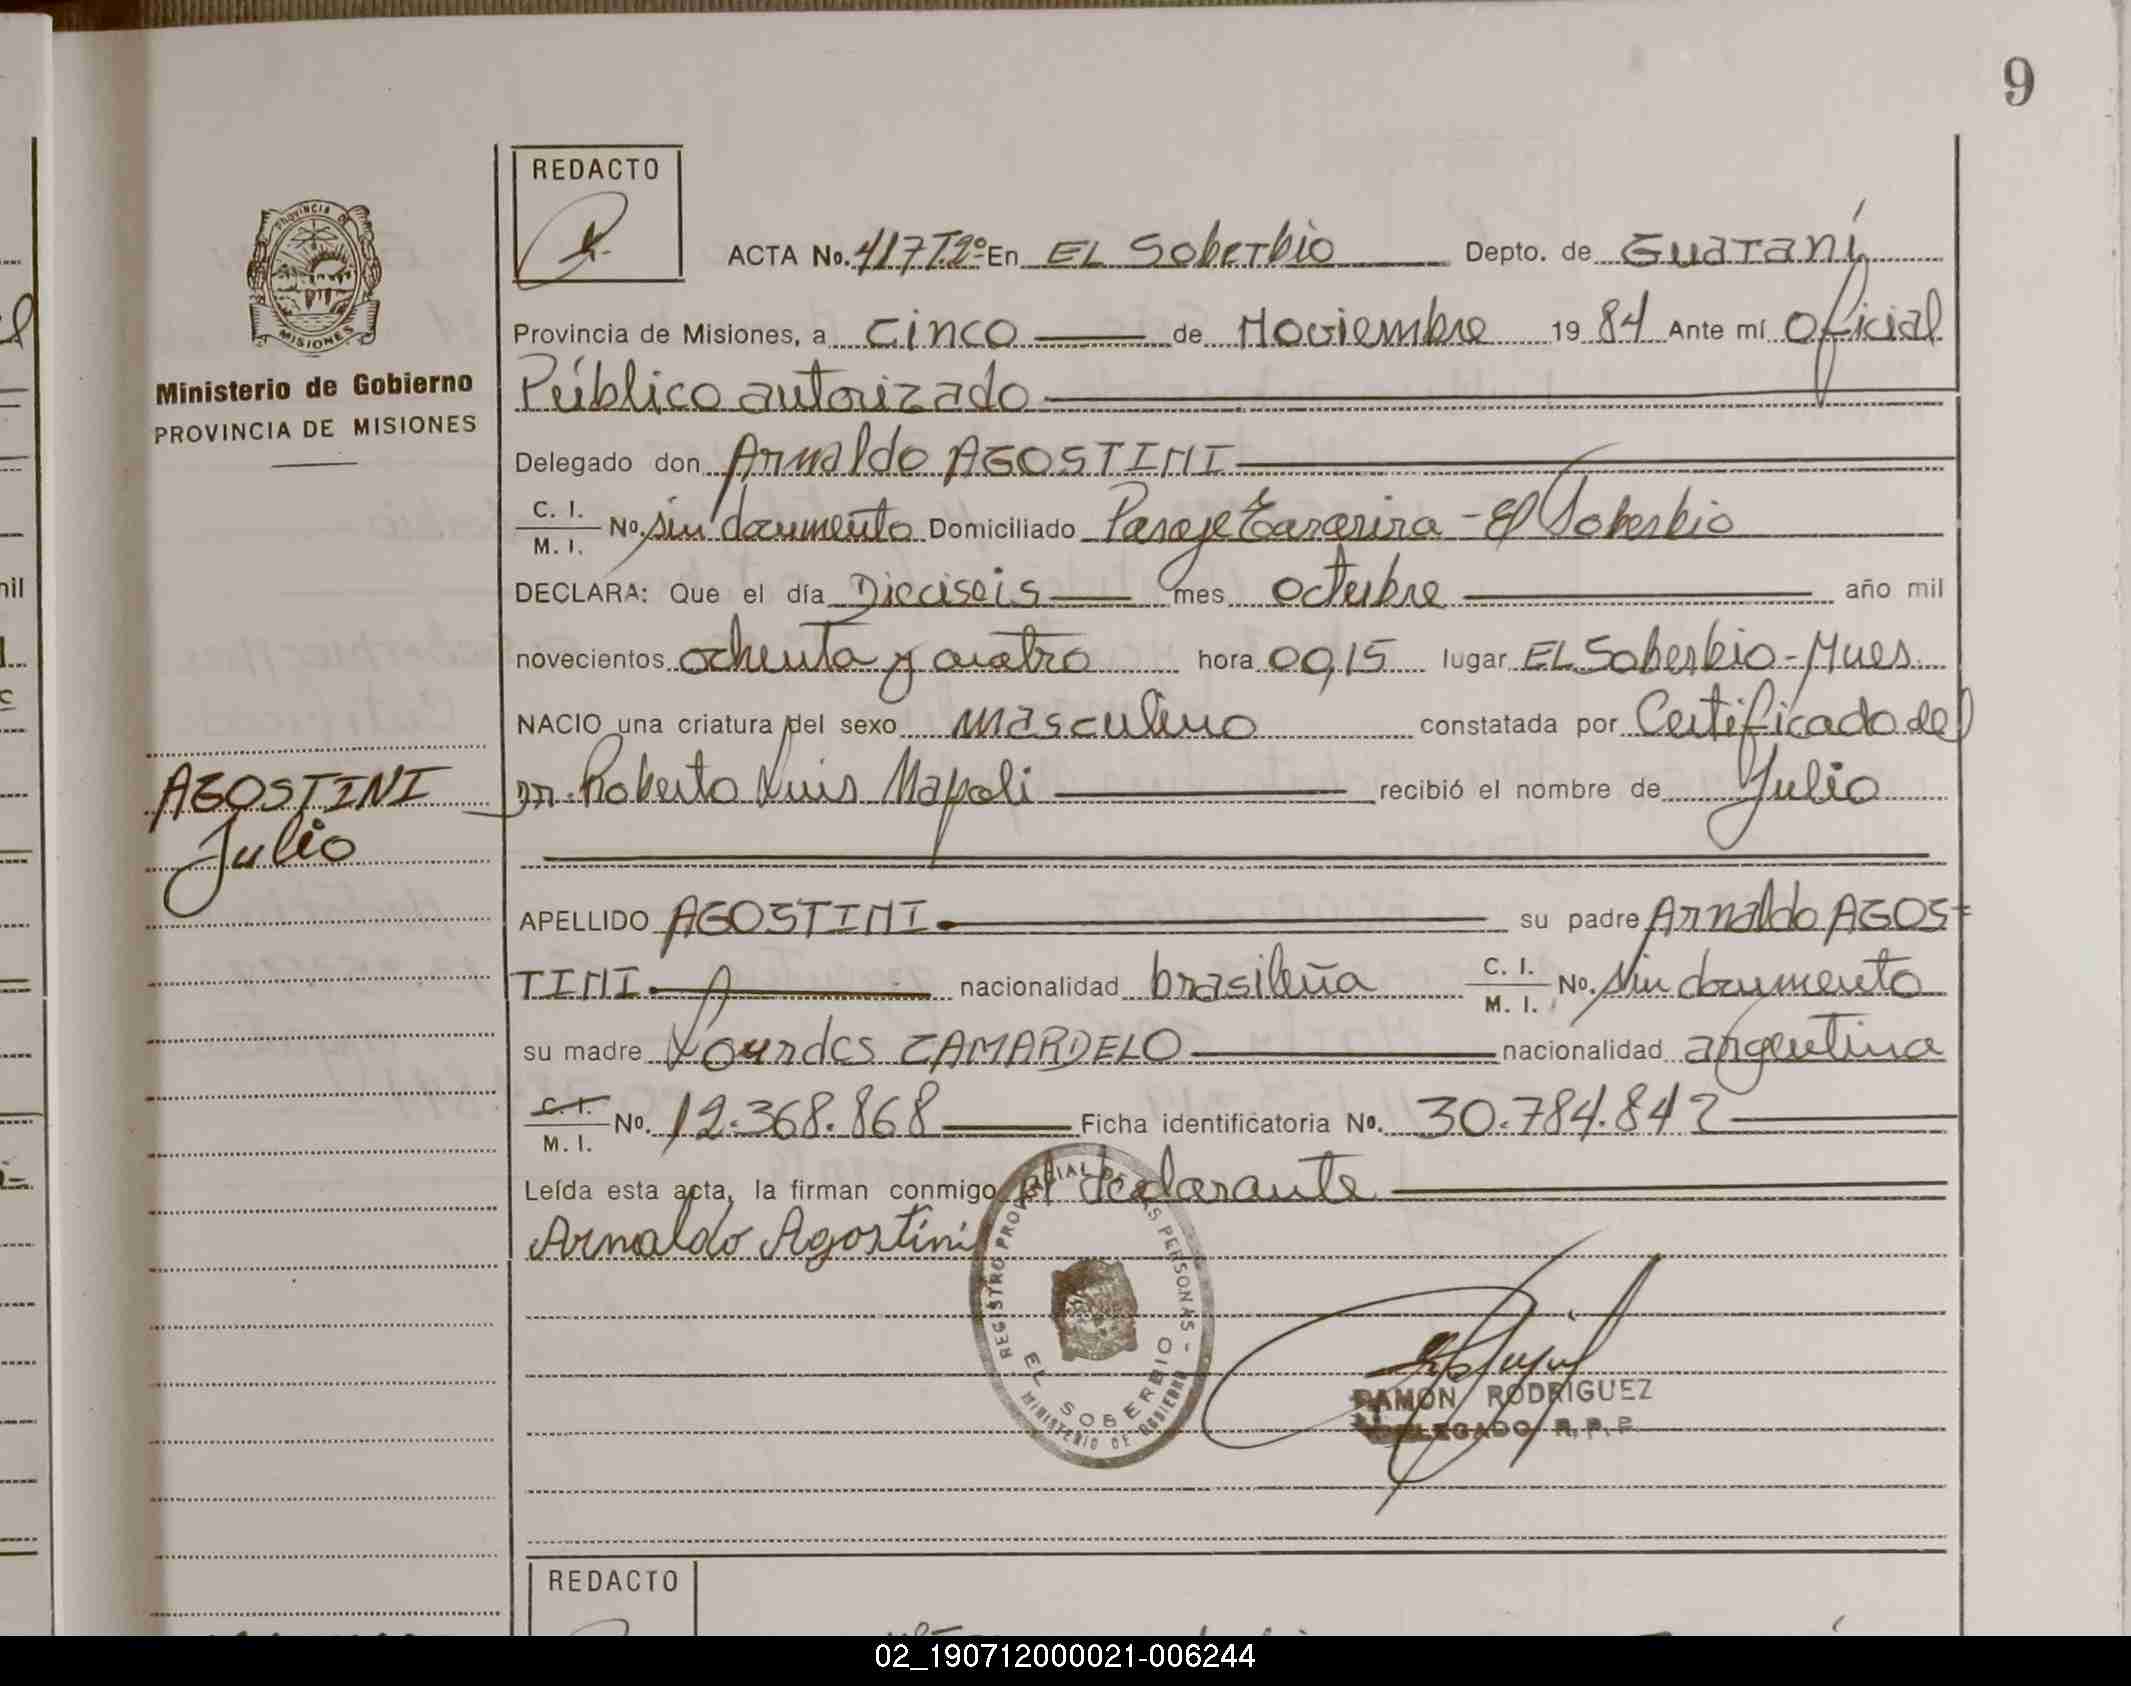 9
REDACTO
PROVINCIA DE
MISIONES
Ministerio de Gobierno
PROVINCIA DE MISIONES
ACTA No. 417 T.2º En EL Soberbio Depto. de Guaraní
Provincia de Misiones, a cinco de Noviembre 1984 Ante mí Oficial
Público autorizado
Delegado don Arnaldo AGOSTINI
C. I.
M. I. No. sin documento Domiciliado Paraje - El Soberbio
DECLARA: Que el día Dieciseis mes octubre año mil
novecientos ochenta y cuatro hora 00,15 lugar EL Soberbio - Mnes.
NACIO una criatura del sexo masculino constatada por Certificado del
Dr. Roberto Luis Napoli recibió el nombre de Julio
AGOSTINI
Julio
APELLIDO AGOSTINI su padre Arnaldo AGOS=
TINI nacionalidad brasileña C. I.
M. I. No. sin documento
su madre Lourdes ZAMARDELO nacionalidad argentina
C. I.
M. I. No. 12.368.868 Ficha identificatoria No. 30.784.842
Leída esta acta, la firman conmigo el declarante
Arnaldo Agostini
REGISTRO PROVINCIAL DE LAS PERSONAS -
EL SOBERBIO
MINISTERIO DE GOBIERNO
RAMON RODRIGUEZ
DELEGADO R. P. P.
REDACTO
02_190712000021-006244